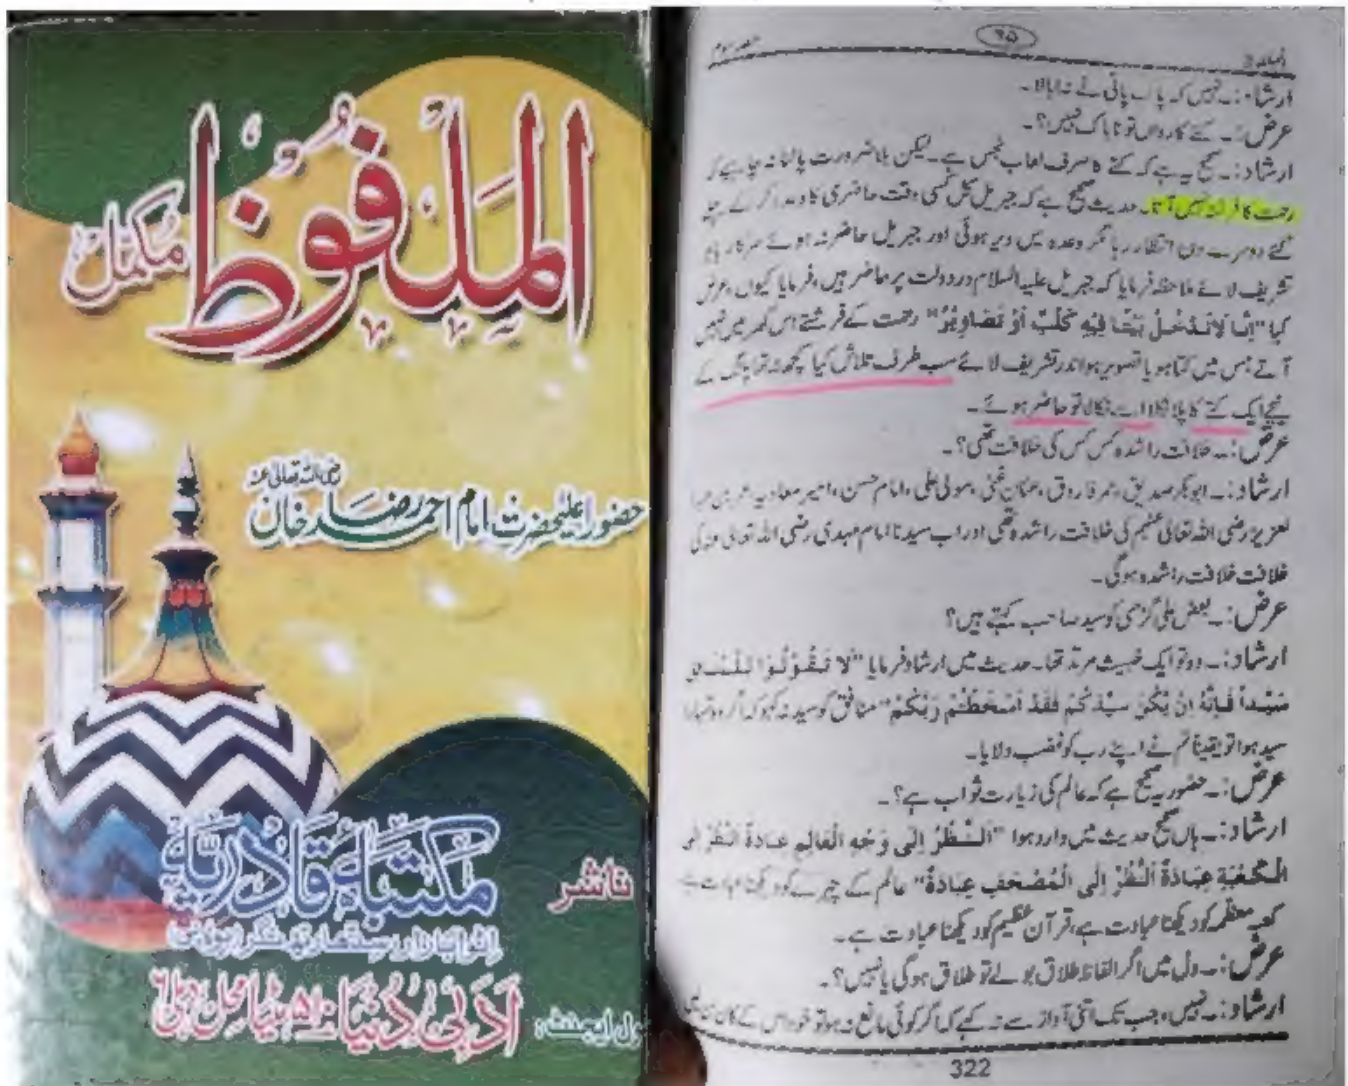 الملفوظ
مکمل
حضور اعلیٰحضرت امام احمد رضا خان رضی اللہ تعالیٰ عنہ
ناشر
مکتبہ قادریہ
اٹوا بازار سدھارتھ نگر (یوپی)
ادبی دنیا ۵۱۰ مٹیا محل دہلی ۶
حصہ سوم
۲۵
ارشاد :۔ نہیں کہ پاک پانی نے نہ ابالا۔
عرض :۔ کتے کا رواں تو ناپاک نہیں؟۔
ارشاد :۔ صحیح یہ ہے کہ کتے کا صرف لعاب نجس ہے۔ لیکن بلا ضرورت پالنا نہ چاہیے کہ
رحمت کا فرشتہ نہیں آتا۔ حدیث صحیح ہے کہ جبریل کل کسی وقت حاضری کا وعدہ کر کے چلے
گئے دوسرے دن انتظار رہا مگر وعدہ میں دیر ہوئی اور جبریل حاضر نہ ہوئے سرکار باہر
تشریف لائے ملاحظہ فرمایا کہ جبریل علیہ السلام در دولت پر حاضر ہیں، فرمایا کیوں، عرض
کیا "اِنَّا لَا نَدْخُلُ بَيْتًا فِيْهِ كَلْبٌ اَوْ تَصَاوِيْرُ" رحمت کے فرشتے اس گھر میں نہیں
آتے جس میں کتا ہو یا تصویر ہو اندر تشریف لائے سب طرف تلاش کیا کچھ نہ تھا پلنگ کے
نیچے ایک کتے کا پلا نکلا اسے نکالا تو حاضر ہوئے۔
عرض :۔ خلافت راشدہ کس کس کی خلافت تھی؟۔
ارشاد :۔ ابوبکر صدیق، عمر فاروق، عثمان غنی، مولیٰ علی، امام حسن، امیر معاویہ، عمر بن عبد
لعزیز رضی اللہ تعالیٰ عنہم کی خلافت راشدہ تھی اور اب سیدنا امام مہدی رضی اللہ تعالیٰ عنہ کی
خلافت خلافت راشدہ ہوگی۔
عرض :۔ بعض علی گڑھی کو سید صاحب کہتے ہیں؟
ارشاد :۔ وہ تو ایک خبیث مرتد تھا۔ حدیث میں ارشاد فرمایا "لَا تَقُوْلُوْا لِلْمُنَافِقِ
سَيِّداً فَاِنَّهُ اِنْ يَّكُنْ سَيِّدُكُمْ فَقَدْ اَسْخَطْتُّمْ رَبَّكُمْ" منافق کو سید نہ کہو کہ اگر وہ تمہارا
سید ہوا تو یقیناً تم نے اپنے رب کو غضب دلایا۔
عرض :۔ حضور یہ صحیح ہے کہ عالم کی زیارت ثواب ہے؟۔
ارشاد :۔ ہاں صحیح حدیث میں وارد ہوا "اَلنَّظْرُ اِلٰى وَجْهِ الْعَالِمِ عِبَادَةٌ اَلنَّظْرُ اِلَى
الْكَعْبَةِ عِبَادَةٌ اَلنَّظْرُ اِلَى الْمُصْحَفِ عِبَادَةٌ" عالم کے چہرے کو دیکھنا عبادت ہے
کعبہ معظمہ کو دیکھنا عبادت ہے، قرآن عظیم کو دیکھنا عبادت ہے۔
عرض :۔ دل میں اگر الفاظ طلاق بولے تو طلاق ہوگی یا نہیں؟۔
ارشاد :۔ نہیں، جب تک اتنی آواز سے نہ کہے کہ اگر کوئی مانع نہ ہو تو خود اس کے کان
322